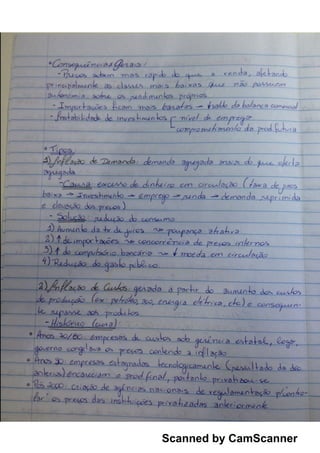 • Consequências Gerais:
- Preços sobem mais rápido do que a renda, afetando
principalmente as classes mais baixas que não possuem
autonomia sobre os rendimentos próprios
- Importações ficam mais baratas → ↑saldo da balança comercial
- Instabilidade de investimentos nível de emprego
comprometimento da prod futura
• Tipos
1) Inflação de Demanda: demanda agregada maior do que oferta
agregada
- Causa: excesso de dinheiro em circulação (taxa de juros
baixa → Investimento → emprego → renda → demanda reprimida
e elevação dos preços)
- Solução: redução do consumo
1) Aumento da tx de juros → poupança atrativa
2) ↑ de importações → concorrência de preços internos
3) ↑ do compulsório bancário → ↓ moeda em circulação
4) Redução do gasto público
2) Inflação de Custos: gerada a partir do aumento dos custos
de produção (ex: petróleo, energia elétrica, etc) e consequen-
te repasse aos produtos
- Histórico
• Anos 70/80: empresas de custos sob gerência estatal, logo,
governo congelava os preços contendo a inflação
• Anos 90: empresas estagnadas tecnologicamente (resultado da déc
anterior) encareciam o prod final, portanto privatizou-se
• Pós 2000: criação de agências nacionais de regulamentação p/ contro-
lar os preços das instituições privatizadas anteriormente
Scanned by CamScanner